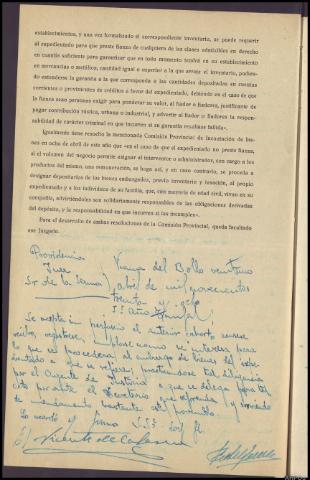 establecimientos, y una vez formalizado el correspondiente inventario, se puede requerir
al expedientado para que preste fianza de cualquiera de las clases admitidas en derecho
en cuantía suficiente para garantizar que en todo momento tendrá en su establecimiento
en mercancías o metálico, cantidad igual o superior a la que arroje el inventario, pudien-
do extenderse la garantía a la que corresponda a las cantidades depositadas en cuentas
corrientes o provinientes de créditos a favor del expedientado, debiendo en el caso de que
la fianza sean personas exigir para ponderar su valor, al fiador o fiadores, justificante de
pagar contribución rústica, urbana o industrial, y advertir al fiador o fiadores la respon-
sabilidad de carácter criminal en que incurren si su garantía resultase fallida».
Igualmente tiene resuelto la mencionada Comisión Provincial de Incautación de bie-
nes en ocho de abril de este año que «en el caso de que el expedientado no preste fianza,
si el volumen del negocio permite asignar al interventor o administrador, con cargo a los
productos del mismo, una remuneración, se haga así, y en caso contrario, se proceda a
designar depositarios de los bienes embargados, previo inventario y tasación, al propio
expedientado y a los individuos de su familia, que, con mayoría de edad civil, vivan en su
compañía, advirtiéndoles son solidariamente responsables de las obligaciones derivadas
del depósito, y la responsabilidad en que incurren si las incumplen».
Para el desarrollo de ambas resoluciones de la Comisión Provincial, queda facultado
ese Juzgado.
Providencia Viana del Bollo veintiuno
Juez abril de mil novecientos
Sr de la Serna treinta y ocho
II Año Triunfal
Se acepta sin perjuicio el anterior exhorto, acúsese
recibo, regístrese, cúmplase como se interesa para
lo que es procederá al embargo de bienes del expe-
dientado a que se refiere, practicándose tal diligencia
por el Agente de
por ante el Secretario
de mandamiento bastante este proveído.
Lo acordó y firma S.Sª doy fe